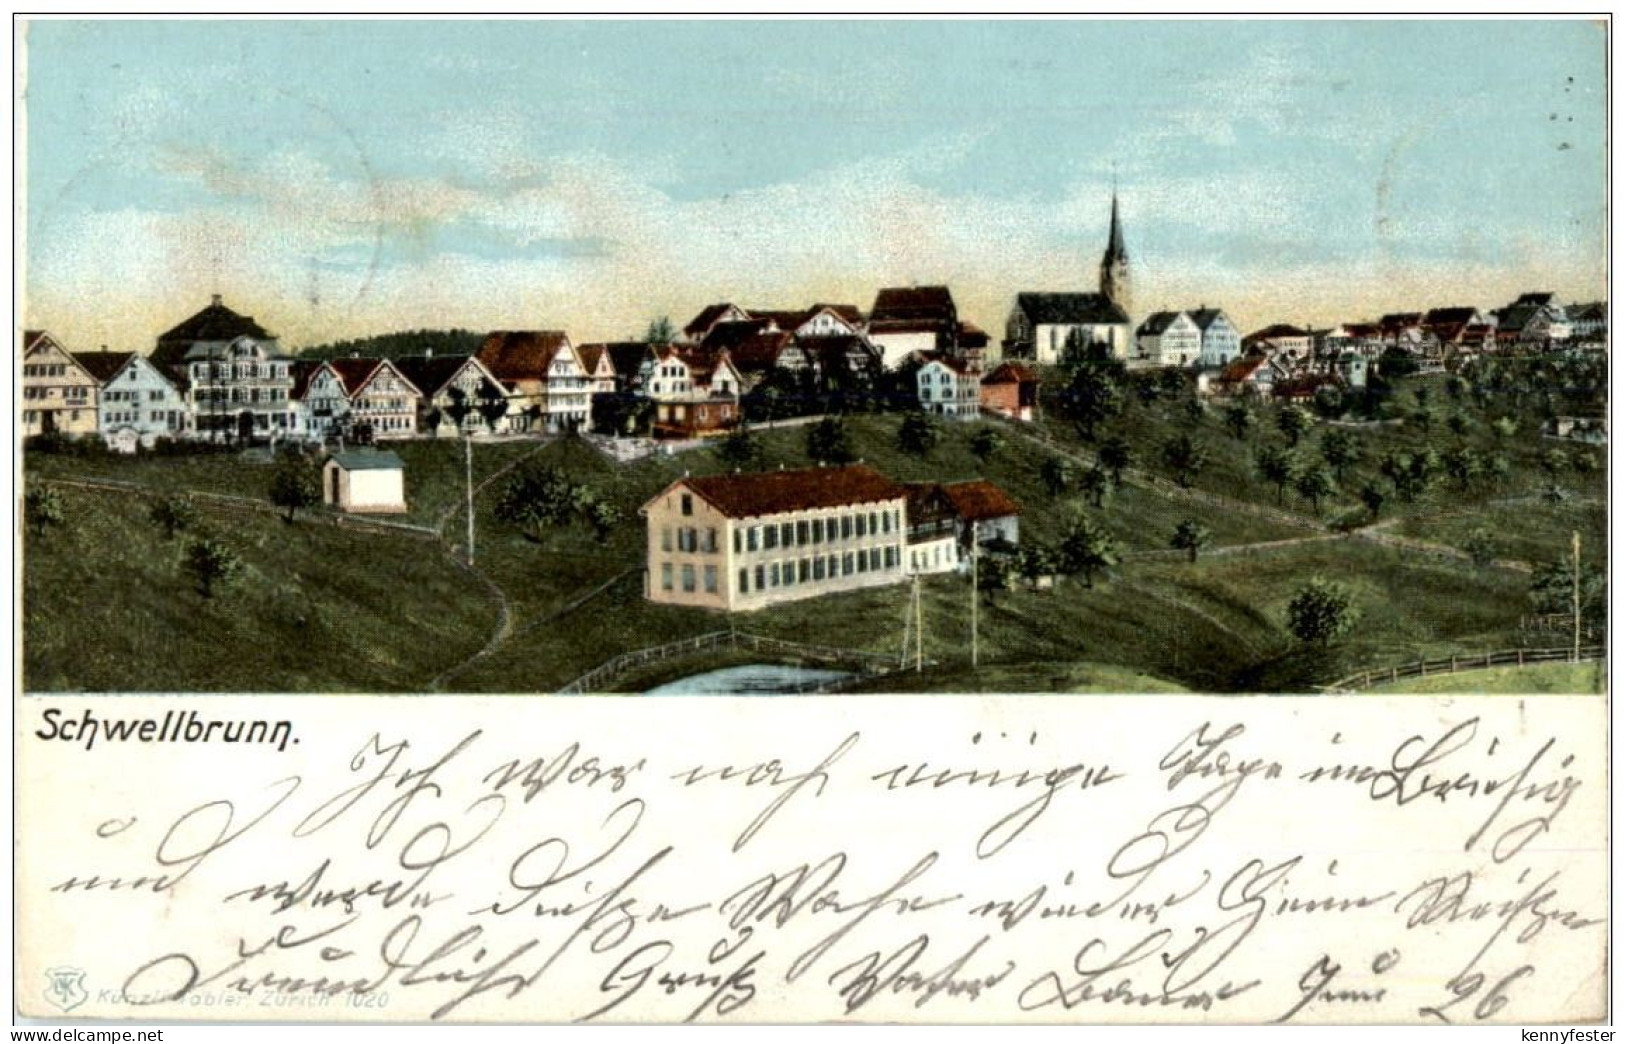 Schwellbrunn.
Ich war noch einige Tage im
und werde diese Woche wieder Heim Reisen
Freundliche Gruß Vater Juni 26
Künzli-Tobler, Zürich 1020
www.delcampe.net
kennyfester